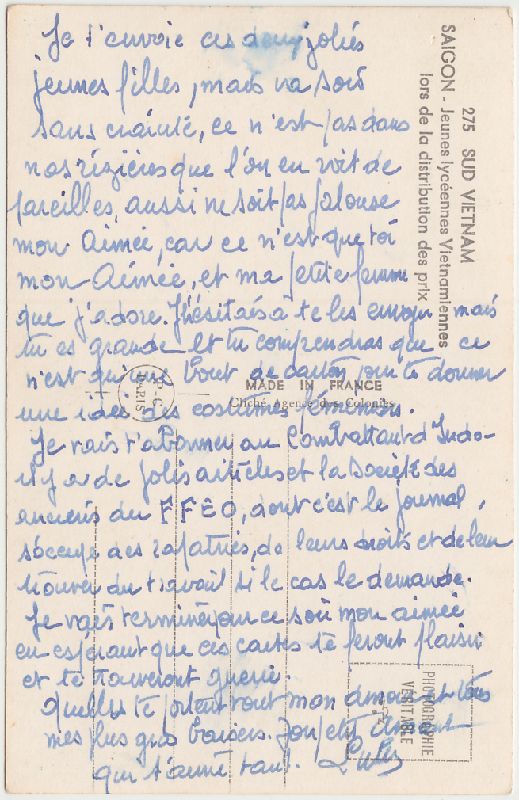 Je t'envoie ces deux jolies
jeunes filles, mais va sois
sans crainte, ce n'est pas dans
nos rizières que l'on en voit de
pareilles, aussi ne soit pas jalouse
mon Aimée, car ce n'est que toi
mon Aimée, et ma petite femme
que j'adore. J'hésitais à te les envoyer mais
tu es grande et tu comprendras que ce
n'est qu'un bout de carton pour te donner
une idée des costumes féminins.
Je vais t'abonner au Combattant d'Indo-
il y a de jolis articles et la Société des
anciens du FFEO, dont c'est le journal,
s'occupe des rapatriés, de leurs droits et de leur
trouver du travail si le cas le demande.
Je vais terminer pour ce soir mon aimée
en espérant que ces cartes te feront plaisir
et te trouveront guérie.
Quelles te portent tout mon amour et tous
mes plus gros baisers. Ton petit
qui t'aime tant.
275 SUD VIETNAM
SAIGON - Jeunes lycéennes Vietnamiennes
lors de la distribution des prix
MADE IN FRANCE
Cliché Agence des Colonies
PARIS
PHOTOGRAPHIE
VÉRITABLE